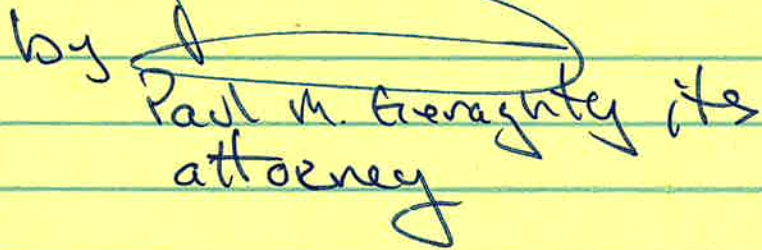 by
Paul M. Geraghty its
attorney